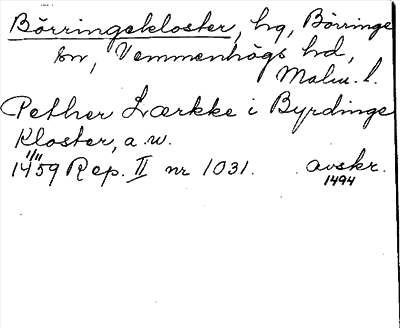 Börringekloster, hg, Börringe
sn, Vemmenhögs hd,
Malm. l.
Pether Lærkke i Byrdinge
Kloster, a.w.
1/11
1459 Rep. II nr 1031. avskr.
1494